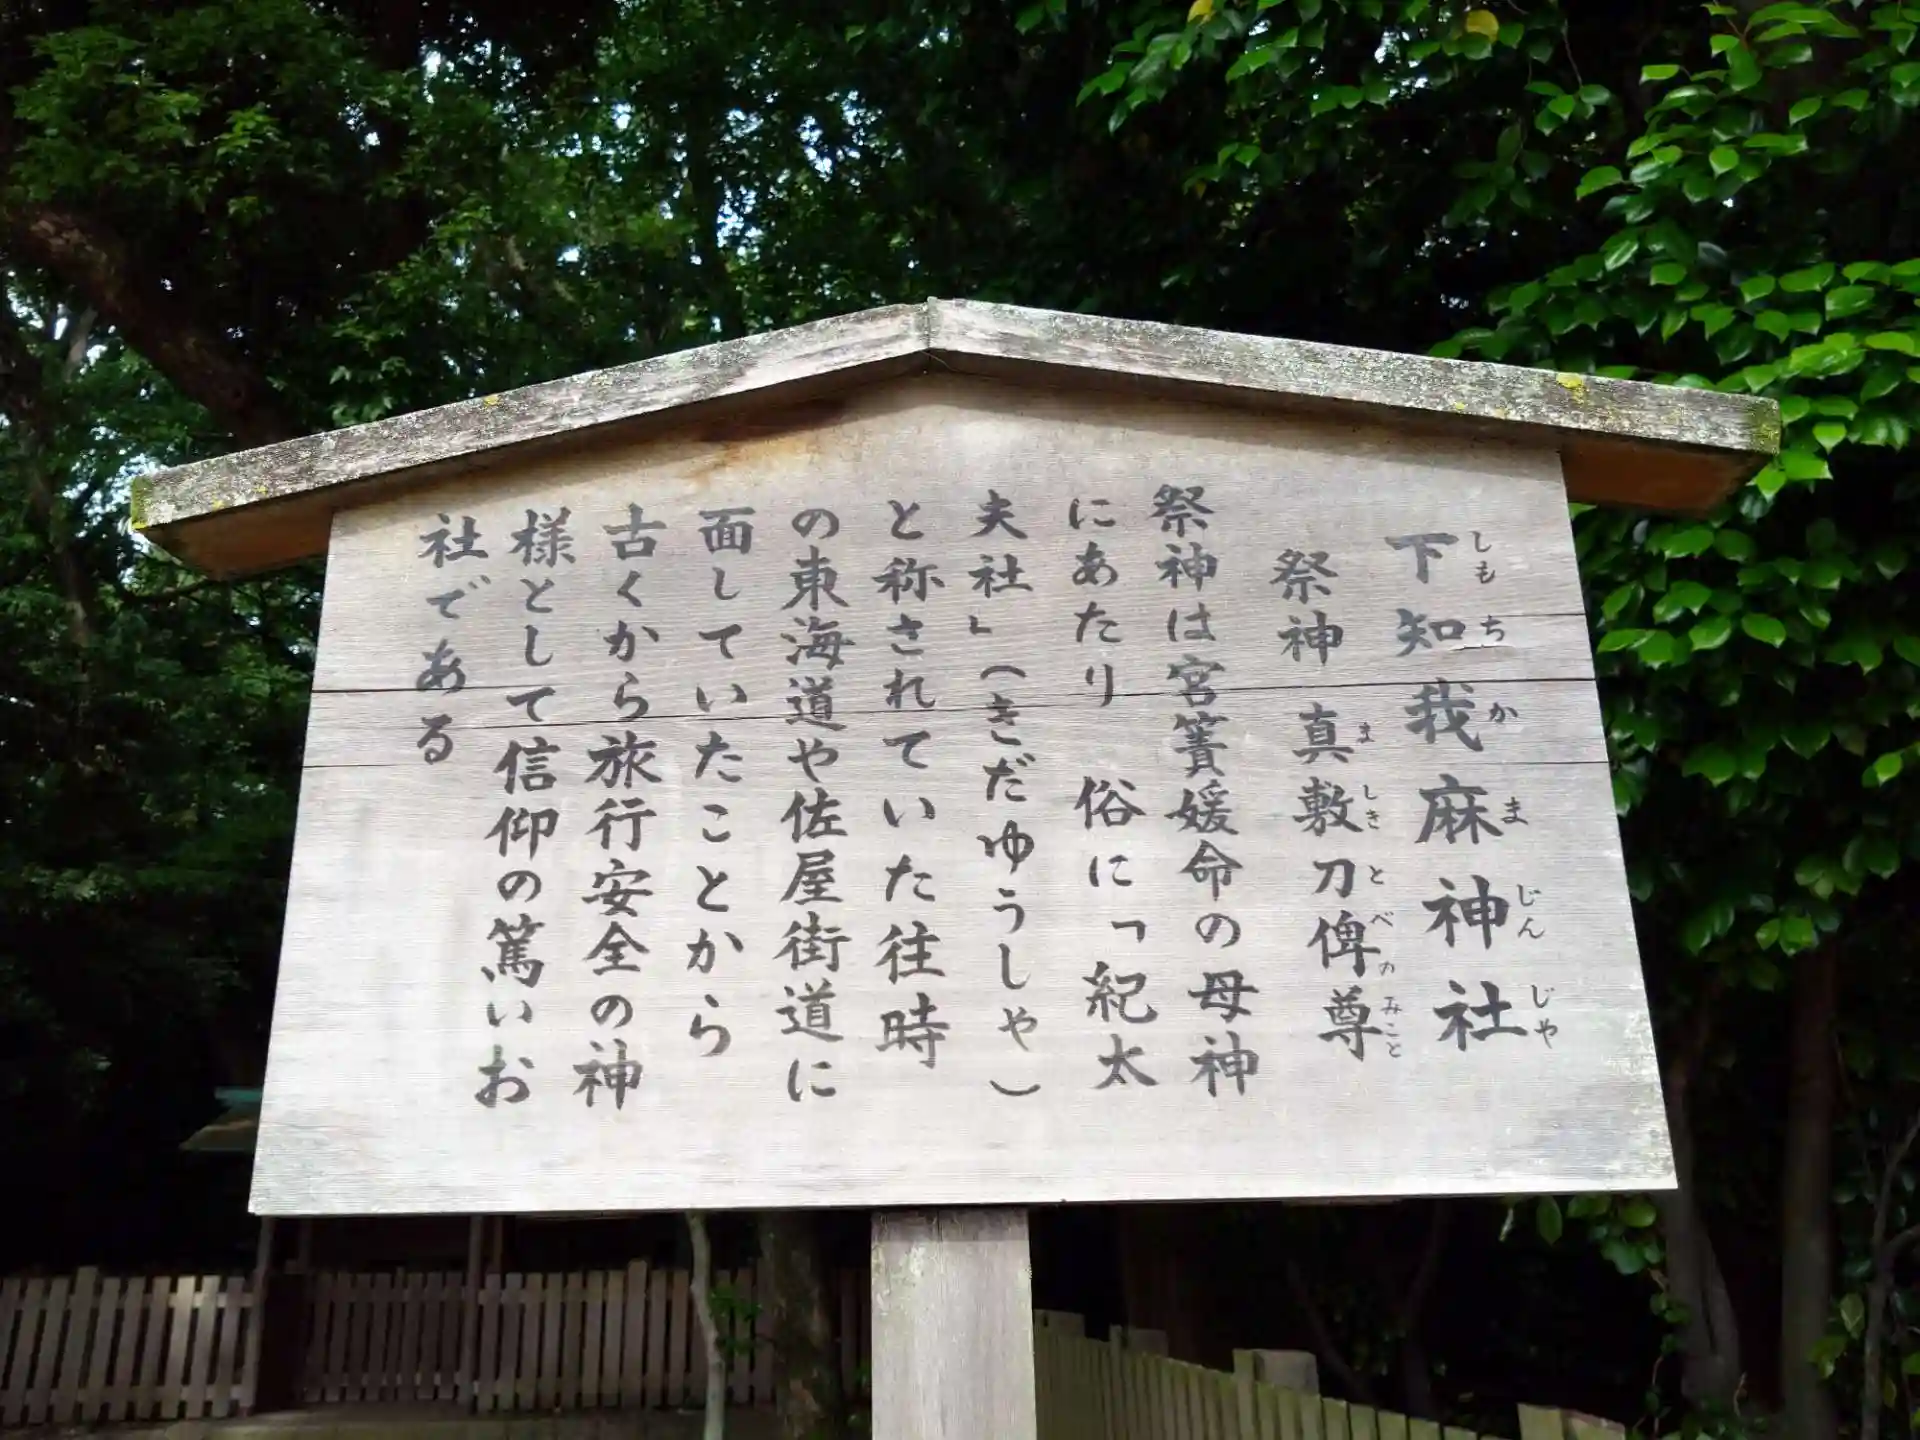 下知我麻神社
しもちかまじんじや
祭神 真敷刀俾尊
ましきとべのみこと
祭神は宮簀媛命の母神
にあたり 俗に「紀太
夫社」(きだゆうしゃ)
と称されていた往時
の東海道や佐屋街道に
面していたことから
古くから旅行安全の神
様として信仰の篤いお
社である